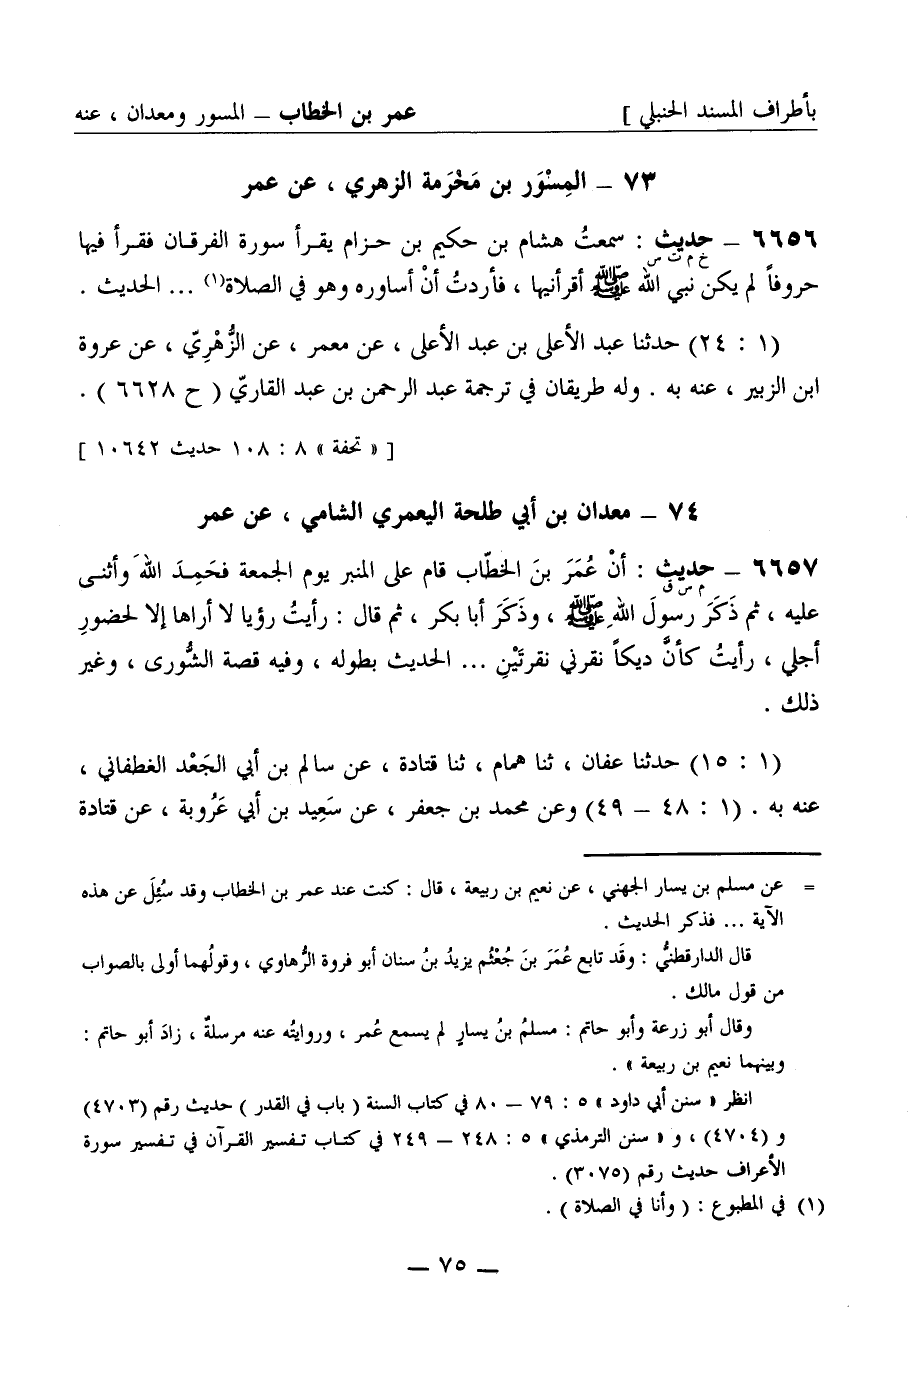 بأطراف المسند الحنبلي ] عمر بن الخطاب – المسور ومعدان ، عنه
٧٣ – المِسْوَر بن مَخْرَمة الزهري ، عن عمر
٦٦٥٦ – حديث : سمعتُ هشام بن حكيم بن حزام يقرأ سورة الفرقان فقرأ فيها
خ م ت س
حروفاً لم يكن نبي الله ﷺ أقرأنيها ، فأردتُ أنْ أساوره وهو في الصلاة(١) ... الحديث .
(١ : ٢٤) حدثنا عبد الأعلى بن عبد الأعلى ، عن معمر ، عن الزُّهْرِيّ ، عن عروة
ابن الزبير ، عنه به . وله طريقان في ترجمة عبد الرحمن بن عبد القاريّ ( ح ٦٦٢٨ ) .
[ « تحفة » ٨ : ١٠٨ حديث ١٠٦٤٢ ]
٧٤ – معدان بن أبي طلحة اليعمري الشامي ، عن عمر
٦٦٥٧ – حديث : أنْ عُمَرَ بنَ الخطّاب قام على المنبر يوم الجمعة فحَمِدَ اللهَ وأثنى
م س ق
عليه ، ثم ذَكَرَ رسولَ اللهِ ﷺ ، وذَكَرَ أبا بكر ، ثم قال : رأيتُ رؤيا لا أراها إلا لحضورِ
أجلي ، رأيتُ كأنَّ ديكاً نقرني نقرتَيْنِ ... الحديث بطوله ، وفيه قصة الشُّورى ، وغير
ذلك .
(١ : ١٥) حدثنا عفان ، ثنا همام ، ثنا قتادة ، عن سالم بن أبي الجَعْد الغطفاني ،
عنه به . (١ : ٤٨ – ٤٩) وعن محمد بن جعفر ، عن سَعِيد بن أبي عَرُوبة ، عن قتادة
= عن مسلم بن يسار الجهني ، عن نعيم بن ربيعة ، قال : كنت عند عمر بن الخطاب وقد سُئِلَ عن هذه
الآية ... فذكر الحديث .
قال الدارقطنيُّ : وقَد تابع عُمَرَ بنَ جُعْثُم يزيدُ بنُ سنان أبو فروة الرُّهاوي ، وقولُهما أولى بالصواب
من قول مالك .
وقال أبو زرعة وأبو حاتم : مسلمُ بنُ يسارٍ لم يسمع عُمر ، وروايتُه عنه مرسلةٌ ، زادَ أبو حاتم :
وبينهما نعيم بن ربيعة » .
انظر « سنن أبي داود » ٥ : ٧٩ – ٨٠ في كتاب السنة ( باب في القدر ) حديث رقم (٤٧٠٣)
و (٤٧٠٤) ، و « سنن الترمذي » ٥ : ٢٤٨ – ٢٤٩ في كتاب تفسير القرآن في تفسير سورة
الأعراف حديث رقم (٣٠٧٥) .
(١) في المطبوع : ( وأنا في الصلاة ) .
– ٧٥ –